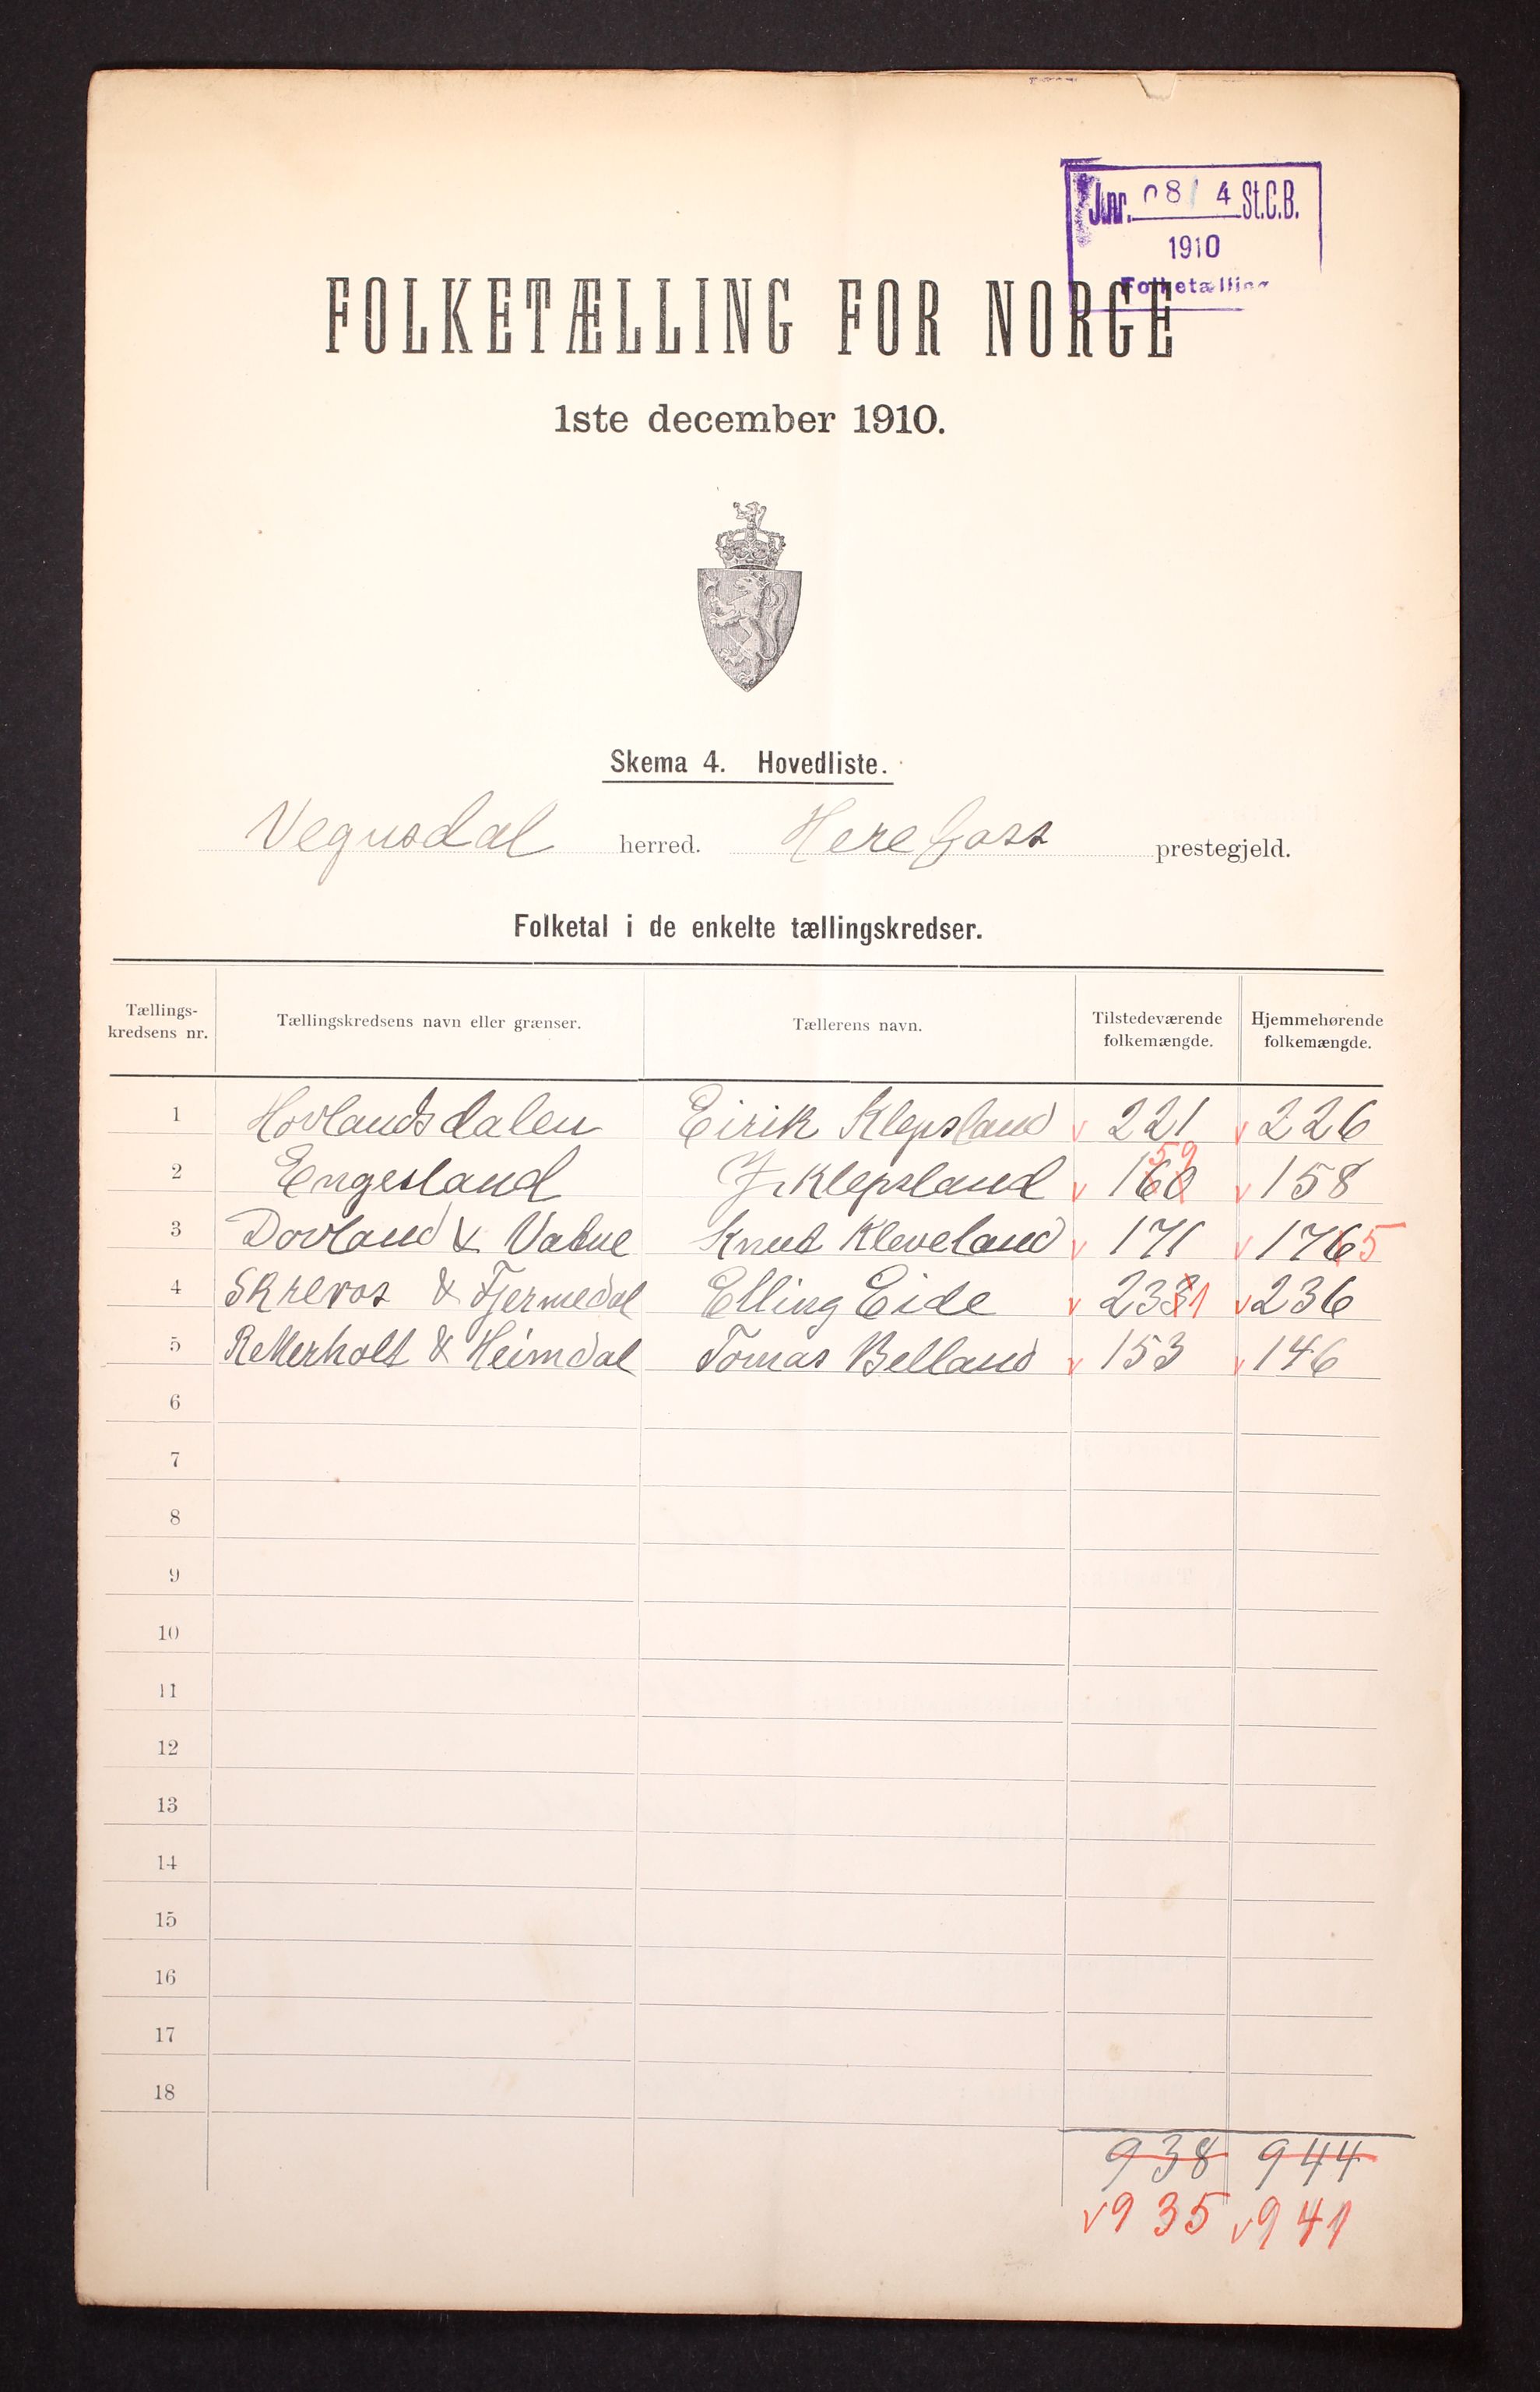 J.nr. 08 4 St.C.B.
1910
Folketælling
FOLKETÆLLING FOR NORGE
1ste december 1910.
Skema 4. Hovedliste.
Vegusdal herred. Herefoss prestegjeld.
Folketal i de enkelte tællingskredser.
Tællings-kredsens nr. Tællingskredsens navn eller grænser. Tællerens navn. Tilstedeværende folkemængde. Hjemmehørende folkemængde.
1 Hovlandsdalen Eirik Klepsland v 221 v 226
2 Engesland J. Klepsland v 160 59 v 158
3 Dovland & Vatne Knut Kleveland v 171 v 176 5
4 Skrevos & Fjermedal Elling Eide v 233 1 v 236
5 Retterholt & Heimdal Tomas Belland v 153 v 146
6
7
8
9
10
11
12
13
14
15
16
17
18
938 944
v 935 v 941